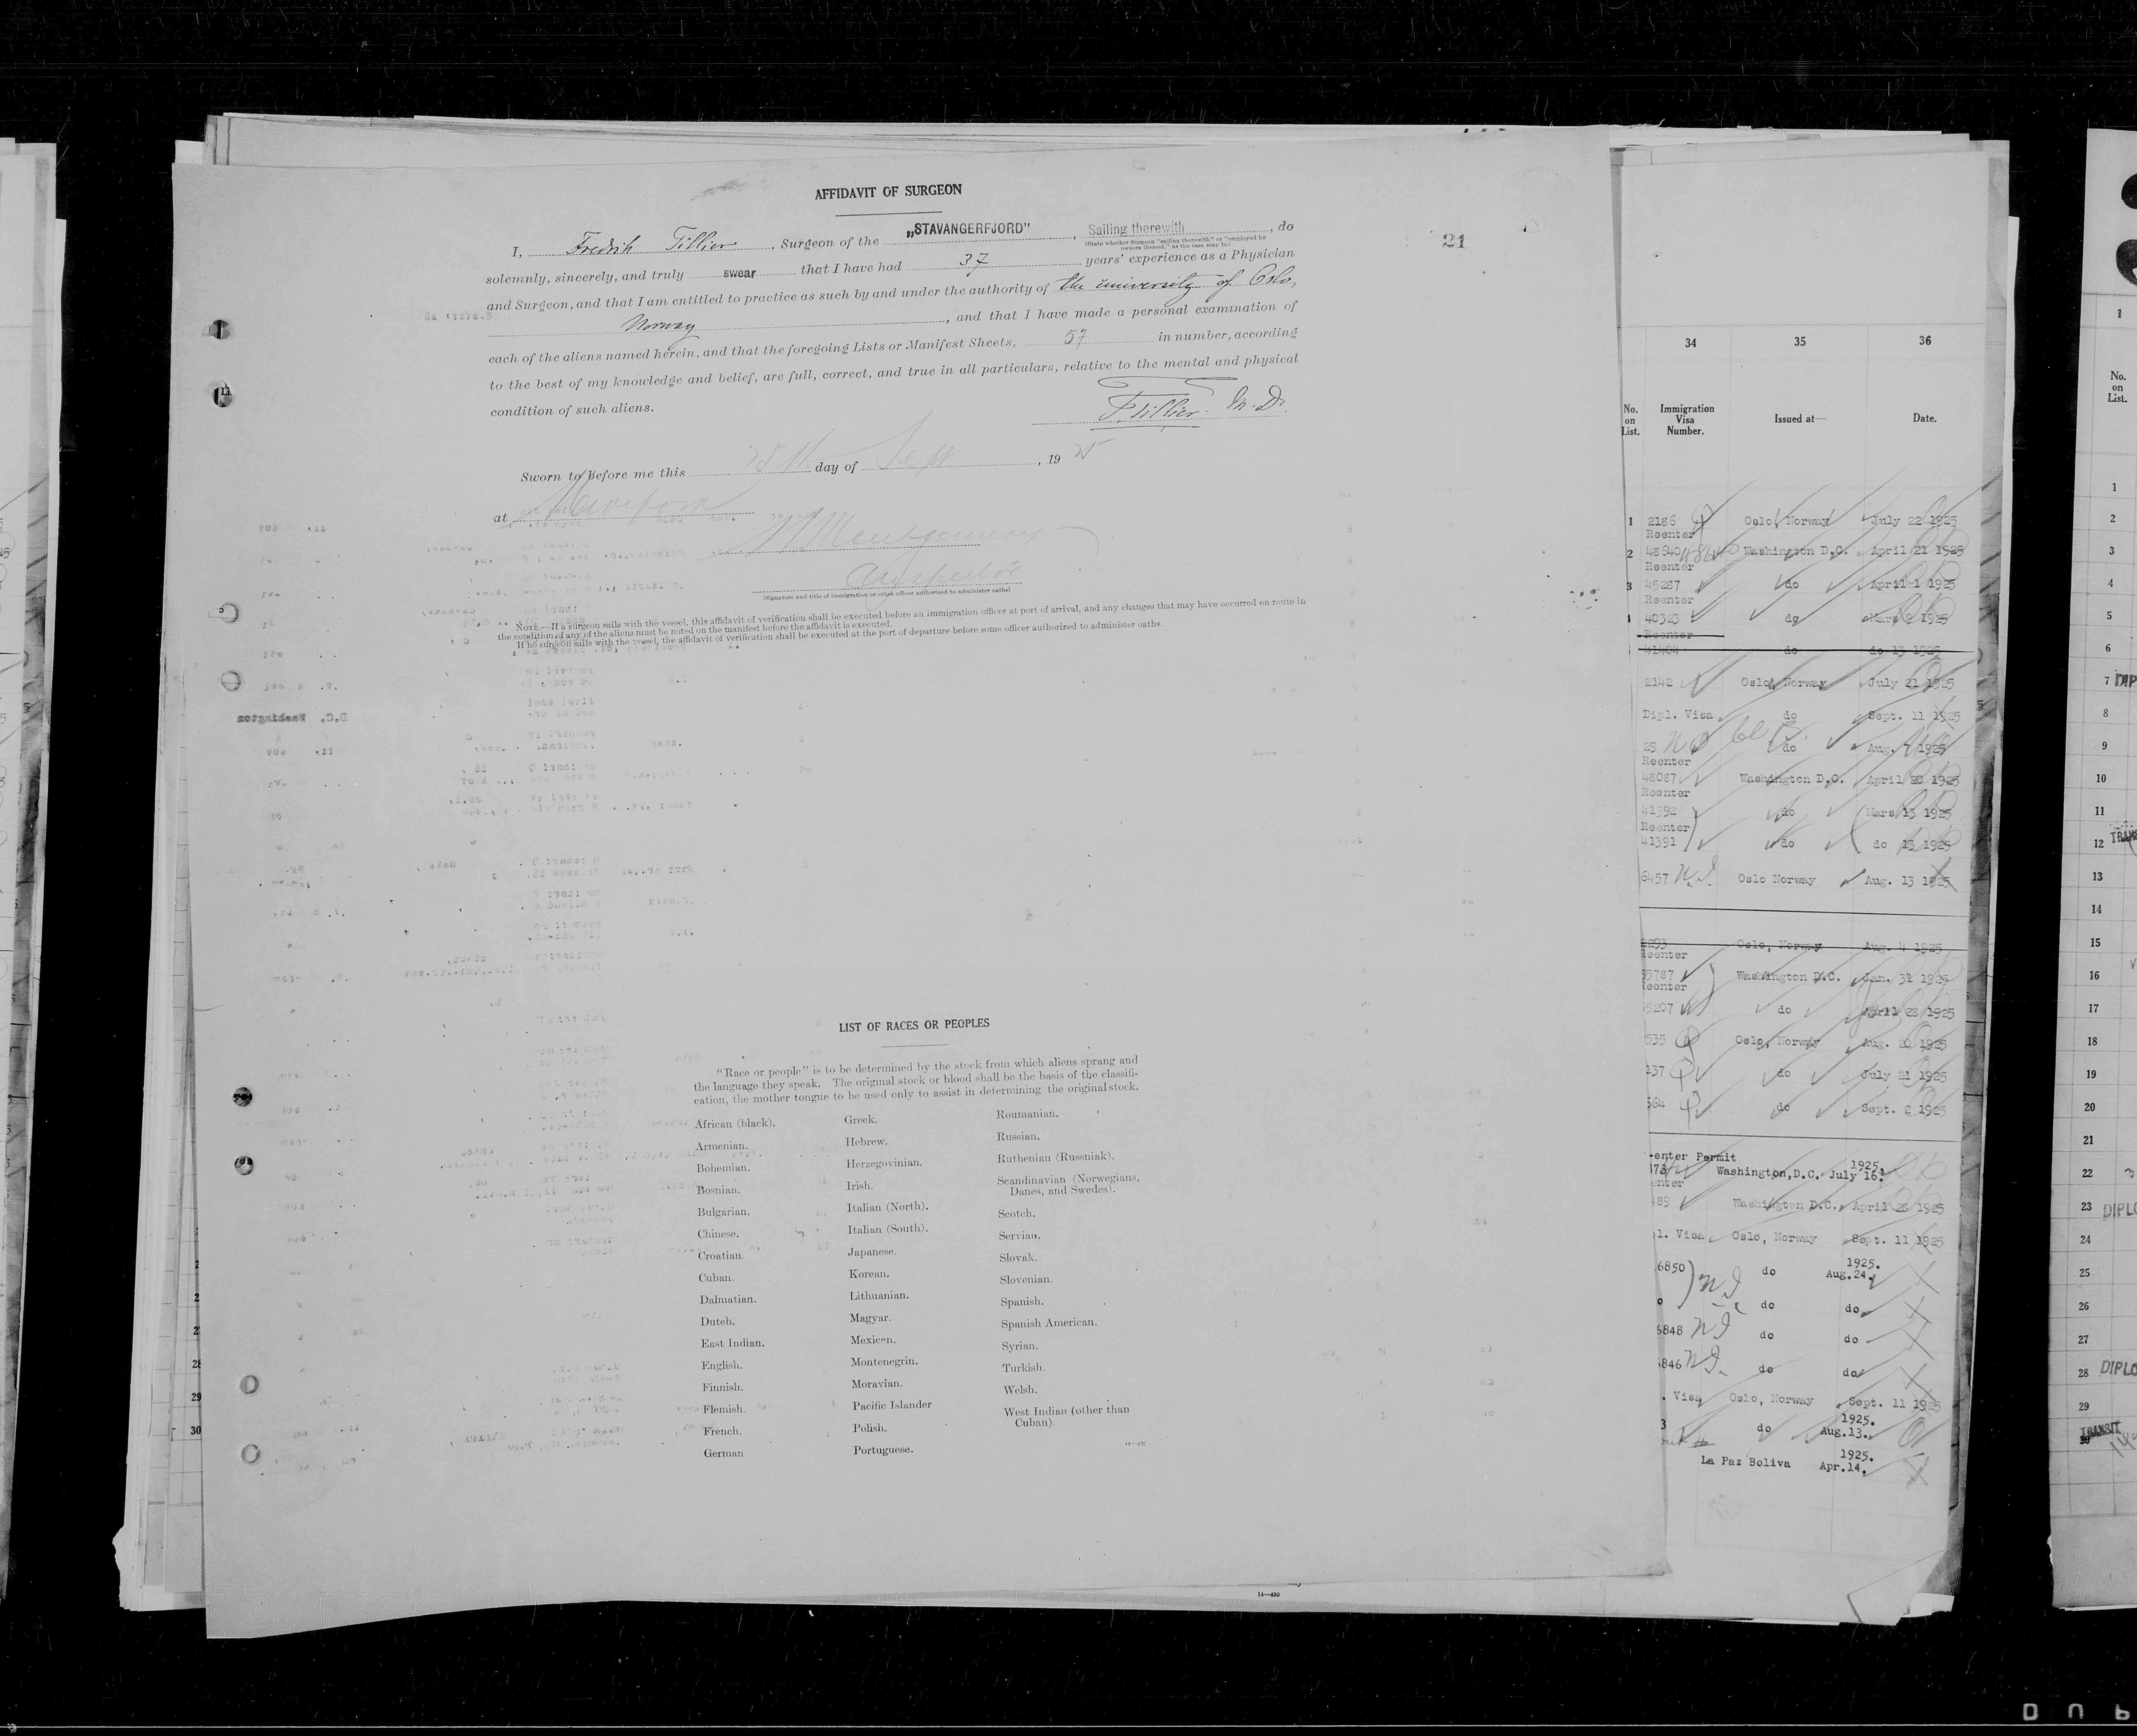 AFFIDAVIT OF SURGEON
I, Fredrik Tillier, Surgeon of the „STAVANGERFJORD", Sailing therewith, do
(State whether Surgeon "sailing therewith" or "employed by
owners thereof," as the case may be)
21
solemnly, sincerely, and truly swear that I have had 37 years' experience as a Physician
and Surgeon, and that I am entitled to practice as such by and under the authority of the university of Oslo,
Norway, and that I have made a personal examination of
each of the aliens named herein, and that the foregoing Lists or Manifest Sheets, 57 in number, according
to the best of my knowledge and belief, are full, correct, and true in all particulars, relative to the mental and physical
condition of such aliens.
F. Tillier. M. D.
Sworn to before me this 25th day of Sept, 19 25
at
Montgomery
Inspector
(Signature and title of immigration or other officer authorized to administer oaths)
NOTE.—If a surgeon sails with the vessel, this affidavit of verification shall be executed before an immigration officer at port of arrival, and any changes that may have occurred en route in
the condition of any of the aliens must be noted on the manifest before the affidavit is executed.
If no surgeon sails with the vessel, the affidavit of verification shall be executed at the port of departure before some officer authorized to administer oaths.
LIST OF RACES OR PEOPLES
"Race or people" is to be determined by the stock from which aliens sprang and
the language they speak. The original stock or blood shall be the basis of the classifi-
cation, the mother tongue to be used only to assist in determining the original stock.
African (black).
Armenian.
Bohemian.
Bosnian.
Bulgarian.
Chinese.
Croatian.
Cuban.
Dalmatian.
Dutch.
East Indian.
English.
Finnish.
Flemish.
French.
German
Greek.
Hebrew.
Herzegovinian.
Irish.
Italian (North).
Italian (South).
Japanese.
Korean.
Lithuanian.
Magyar.
Mexican.
Montenegrin.
Moravian.
Pacific Islander
Polish.
Portuguese.
Roumanian.
Russian.
Ruthenian (Russniak).
Scandinavian (Norwegians,
Danes, and Swedes).
Scotch.
Servian.
Slovak.
Slovenian.
Spanish.
Spanish American.
Syrian.
Turkish.
Welsh.
West Indian (other than
Cuban)
14—430
34 35 36
No. on List. Immigration Visa Number. Issued at— Date.
1 2186 Oslo, Norway July 22 1925
Reenter
2 48640 Washington D.C. April 21 1925
Reenter
3 45287 do April 1 1925
Reenter
40323 do Mars 1925
Reenter
41404 do do 13 1925
2142 Oslo, Norway July 21 1925
Dipl. Visa do Sept. 11 1925
29 do Aug. 7 1925
Reenter
48087 Washington D.C. April 20 1925
Reenter
41392 do Mars 13 1925
Reenter
41391 do do 13 1925
6457 N.I. Oslo Norway Aug. 13 1925
2293 Oslo, Norway Aug. 4 1925
Reenter
35787 Washington D.C. Jan. 31 1925
Reenter
5207 do April 28 1925
535 Oslo, Norway Aug. 20 1925
137 do July 21 1925
564 do Sept. 2 1925
enter Permit
Washington,D.C. July 16. 1925.
enter
489 Washington D.C. April 28 1925
l. Visa Oslo, Norway Sept. 11 1925
6850 N I do Aug.24. 1925.
do do
6848 N I do do
6846 N I. do do
. Visa Oslo, Norway Sept. 11 1925
3 do Aug.13. 1925.
La Paz Boliva Apr.14. 1925.
28
29
30
1
No. on List.
1
2
3
4
5
6
7 DIP
8
9
10
11
12
13
14
15
16
17
18
19
20
21
22
23 DIPLO
24
25
26
27
28 DIPLO
29
30 TRANSIT